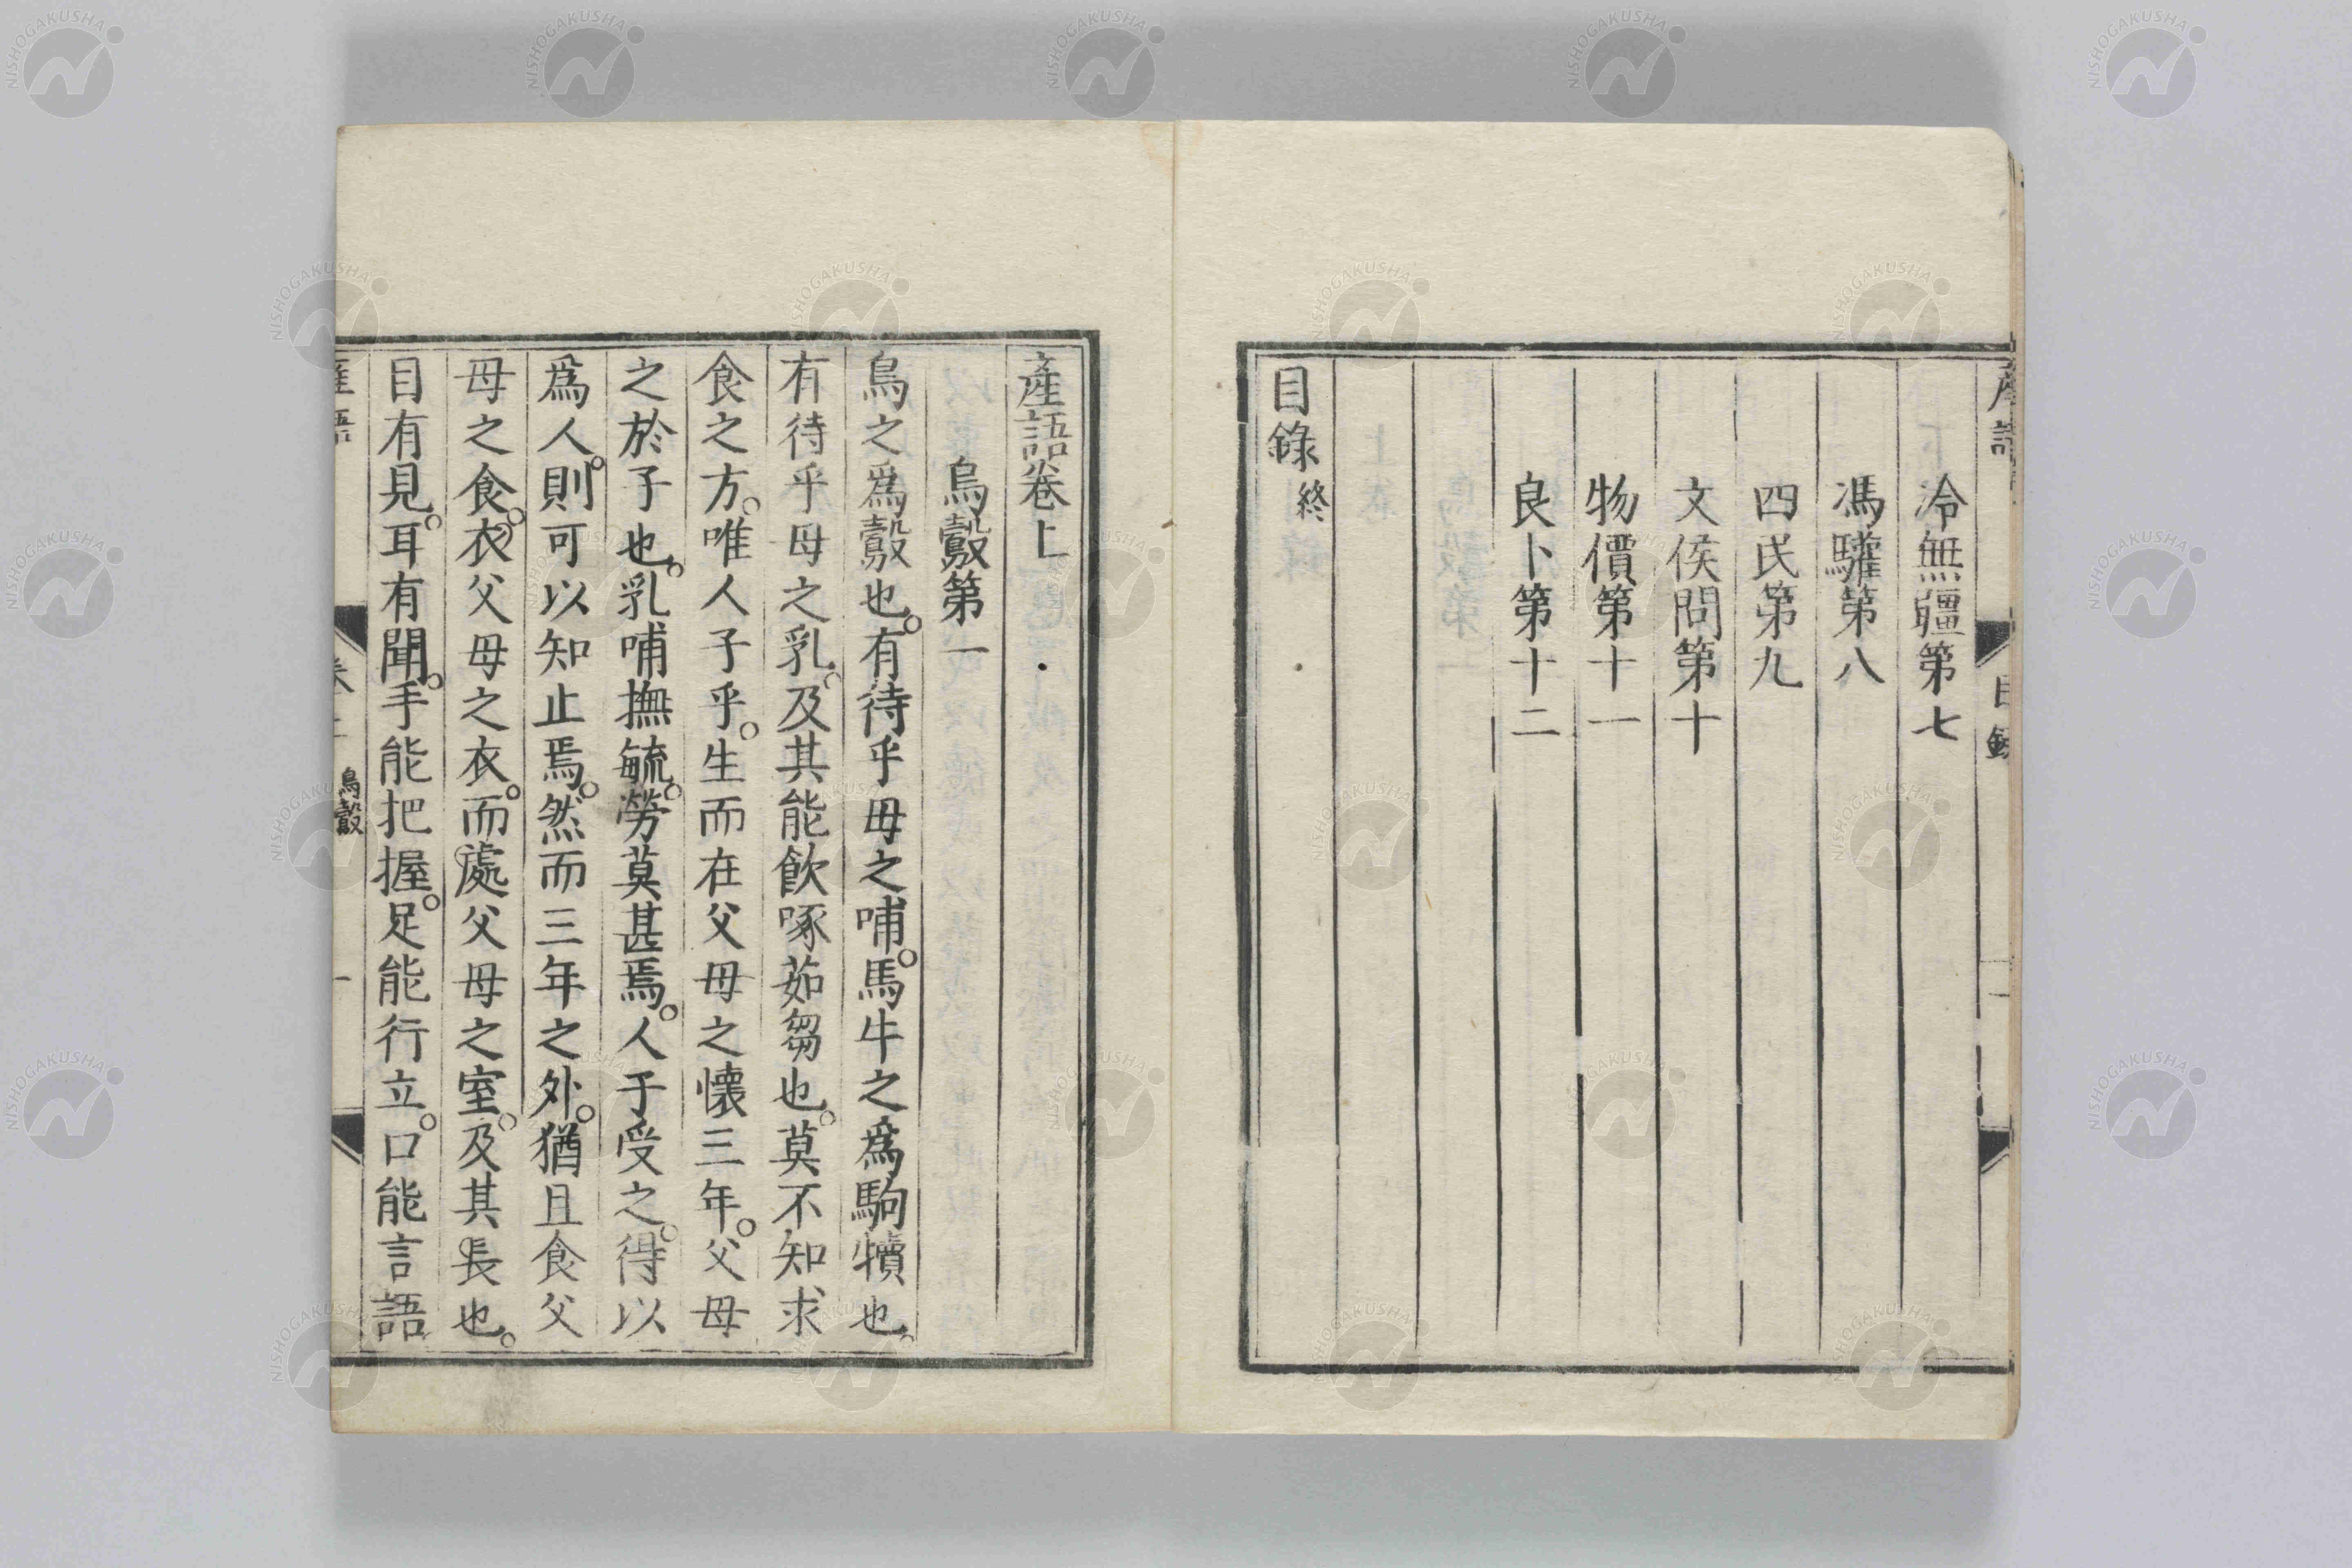 冷無疆第七
馮驩第八
四民第九
文侯問第十
物價第十一
良卜第十二
目錄終
產語卷上
鳥鷇第一
鳥之爲鷇也。有待乎母之哺。馬牛之爲駒犢也。
有待乎母之乳。及其能飮啄茹芻也。莫不知求
食之方。唯人子乎。生而在父母之懷三年。父母
之於子也。乳哺撫毓。勞莫甚焉。人子受之。得以
爲人。則可以知止焉。然而三年之外。猶且食父
母之食。衣父母之衣。而處父母之室。及其長也。
目有見。耳有聞。手能把握。足能行立。口能言語
鳥鷇
一
NISHOGAKUSHA